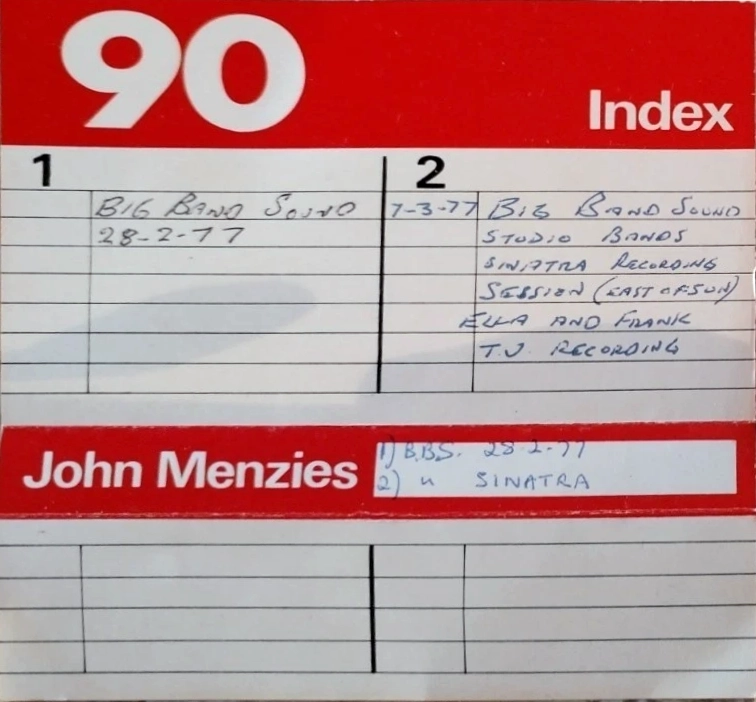 90
Index
1
BIG BAND SOUND
28-2-77
2
7-3-77 BIG BAND SOUND
STUDIO BANDS
SINATRA RECORDING
SESSION (EAST OF SUN)
ELLA AND FRANK
T.V. RECORDING
John Menzies
1) B.B.S. 28-2-77
2) " SINATRA